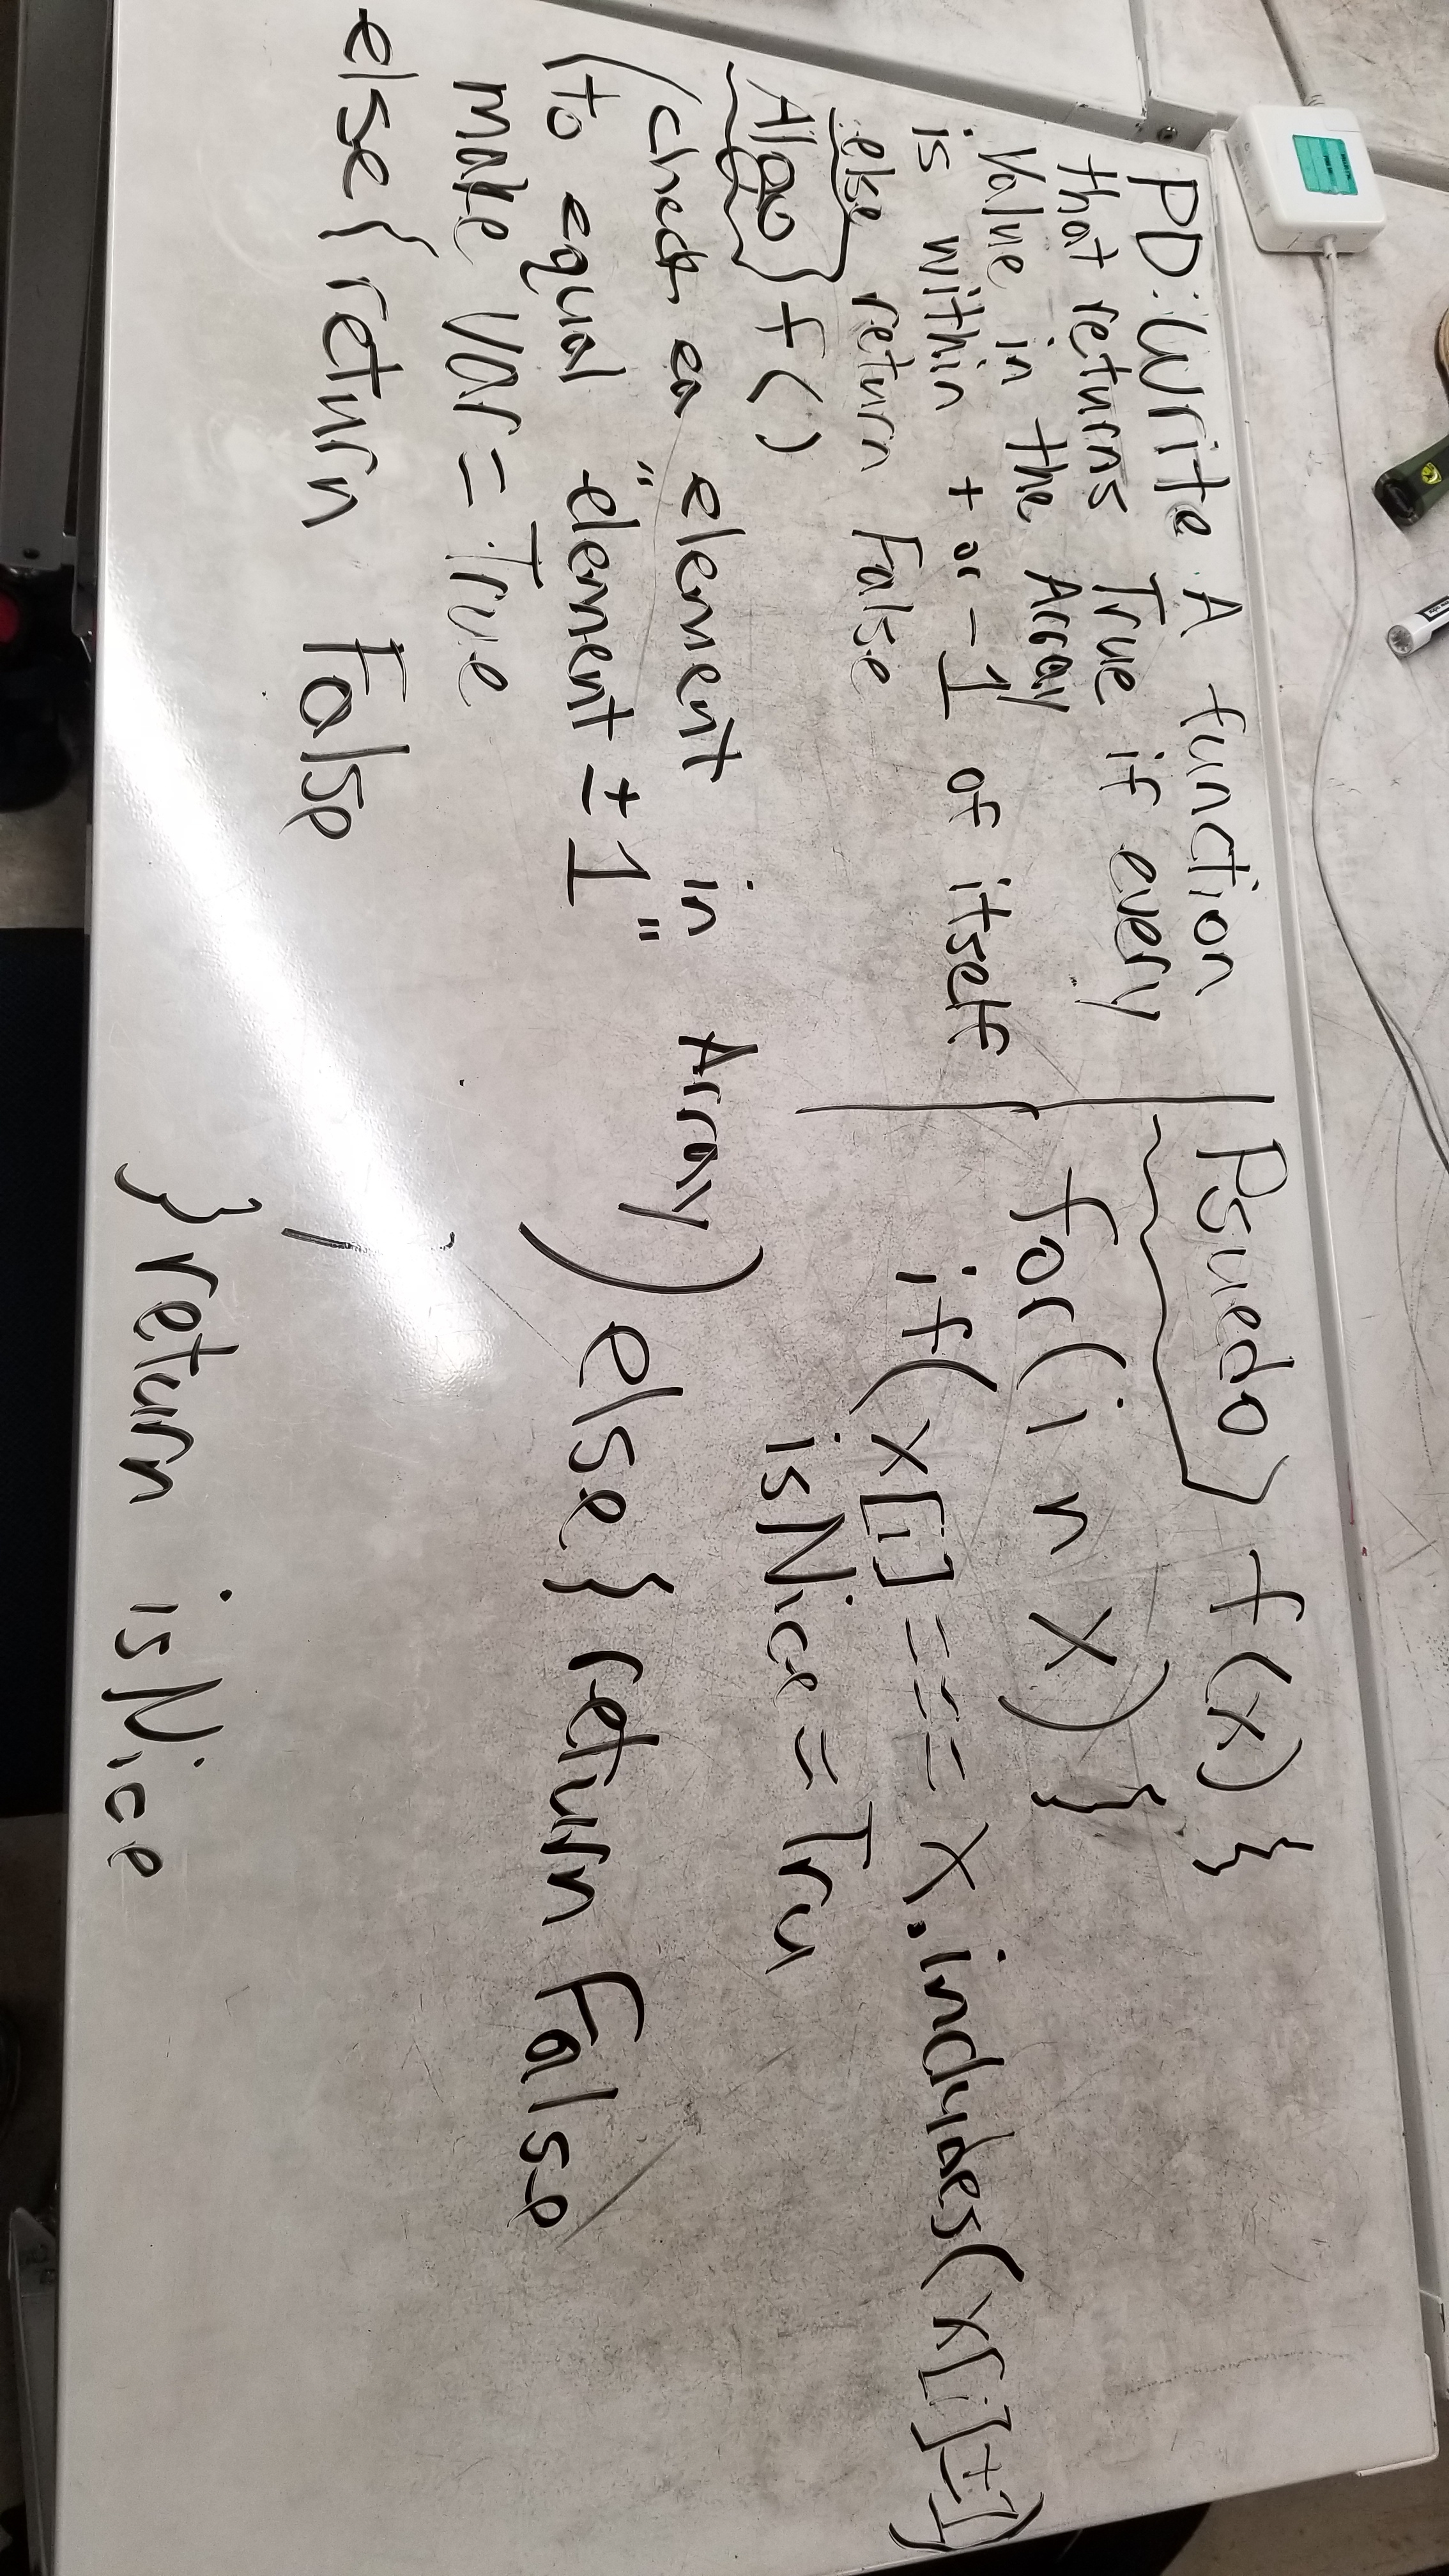 PD: Write A function
that returns True if every
Value in the Array
is within + or - 1 of itself
else return False
Algo} f()
(check ea element in Array)
(to equal "element ± 1")
make Var = True
else { return False
Psuedo} f(x) {
for(i n x) {
if(x[i] === x.includes(x[i]±1)
isNice = Tru
else} return False
}
} return isNice